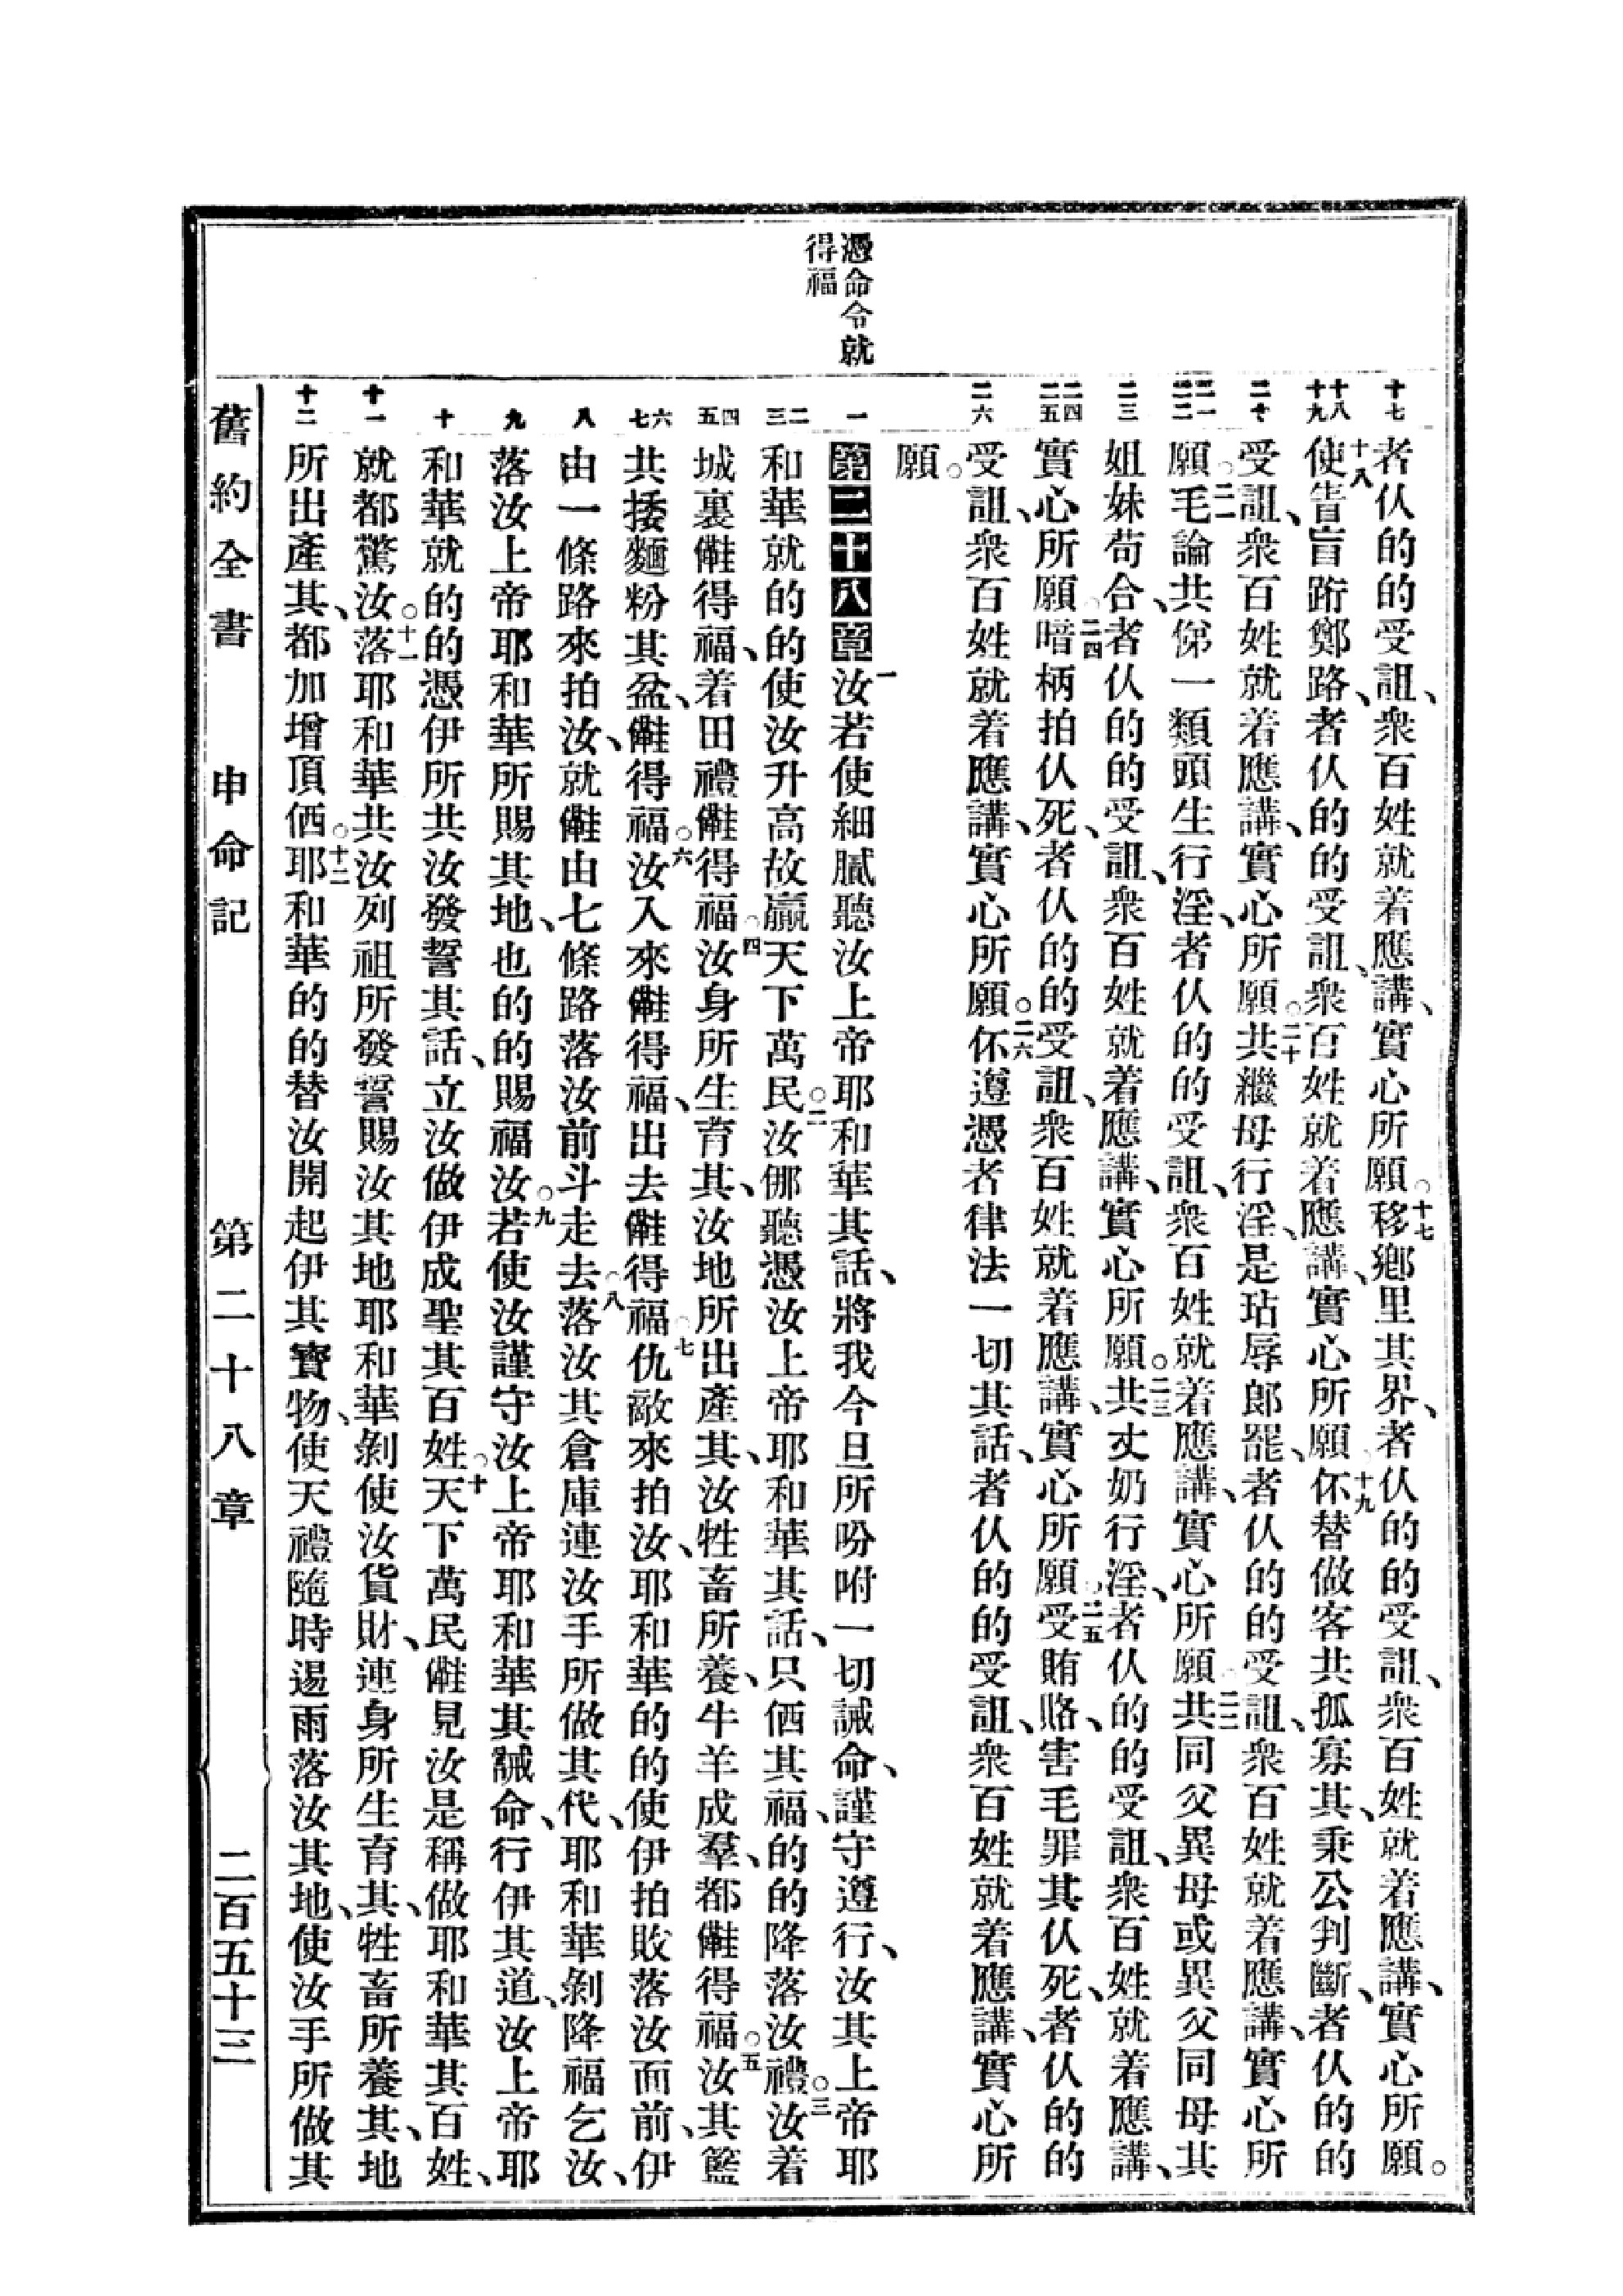 憑命令就
得福
十七
十八
十九
二十
二一
二二
二三
二四
二五
二六
一
二
三
四
五
六
七
八
九
十
十一
十二
者仈的的受詛、衆百姓就着應講、實心所願。十七移鄉里其界、者仈的的受詛、衆百姓就着應講、實心所願。
十八使盲跻鄭路、者仈的的受詛、衆百姓就着應講、實心所願。十九伓替做客共孤寡其、秉公判斷、者仈的的
受詛、衆百姓就着應講、實心所願。二十共繼母行淫、是玷辱郎罷、者仈的的受詛、衆百姓就着應講、實心所
願。二一毛論共俤一類頭生行淫、者仈的的受詛、衆百姓就着應講、實心所願。二二共同父異母或異父同母其
姐妹苟合、者仈的的受詛、衆百姓就着應講、實心所願。二三共丈奶行淫、者仈的的受詛、衆百姓就着應講、
實心所願。二四暗柄拍仈死、者仈的的受詛、衆百姓就着應講、實心所願。二五受賄賂、害毛罪其仈死、者仈的的
受詛、衆百姓就着應講、實心所願。二六伓遵憑者律法一切其話、者仈的的受詛、衆百姓就着應講、實心所
願。
第二十八章 一汝若使細膩聽汝上帝耶和華其話、將我今旦所吩咐一切誡命、謹守遵行、汝其上帝耶
和華就的的使汝升高故贏天下萬民。二汝䏎聽憑汝上帝耶和華其話、只㑚其福、的的降落汝禮。三汝着
城裏𠆧得福、着田禮𠆧得福。四汝身所生育其、汝地所出產其、汝牲畜所養、牛羊成羣、都𠆧得福。五汝其籃
共捼麵粉其盆、𠆧得福。六汝入來𠆧得福、出去𠆧得福。七仇敵來拍汝、耶和華的的使伊拍敗落汝面前、伊
由一條路來拍汝、就𠆧由七條路落汝前斗走去。八落汝其倉庫連汝手所做其代、耶和華剝降福乞汝、
落汝上帝耶和華所賜其地、也的的賜福汝。九若使汝謹守汝上帝耶和華其誡命、行伊其道、汝上帝耶
和華就的的憑伊所共汝發誓其話、立汝做伊成聖其百姓。十天下萬民𠆧見汝是稱做耶和華其百姓、
就都驚汝。十一落耶和華共汝列祖所發誓賜汝其地、耶和華剝使汝貨財、連身所生育其、牲畜所養其、地
所出產其、都加增頂㑚。十二耶和華的的替汝開起伊其寶物、使天禮隨時逷雨落汝其地、使汝手所做其
舊約全書 申命記 第二十八章 二百五十三